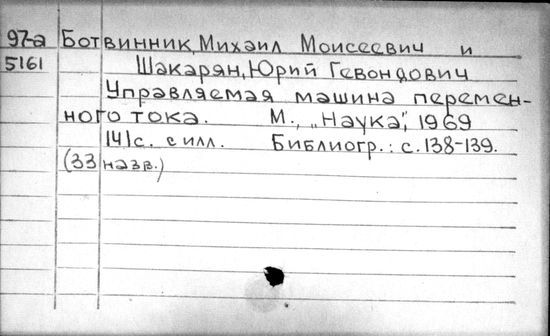 97-а Ботвинник, Михаил Моисеевич и
5161 Шакарян, Юрий Гевондович
Управляемая машина перемен-
ного тока. М., „Наука", 1969
141с. с илл. Библиогр.: с. 138-139.
(33 назв.)